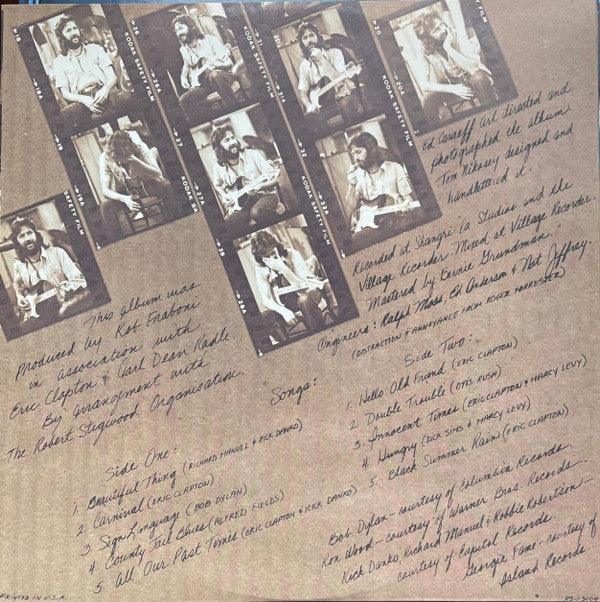 KODAK SAFETY FILM
KODAK SAFETY FILM
KODAK SAFETY FILM
SAFETY FILM
Ed Caraeff art directed and
photographed the album.
Tom Nikosey designed and
handlettered it.
Recorded at Shangri-La Studios and the
Village Recorder. Mixed at Village Recorder.
Mastered by Bernie Grundman.
Engineers: Ralph Moss, Ed Anderson & Nat Jeffrey.
(DISTRACTION & ANNOYANCE FROM ROGER FORRESTER)
This album was
Produced by Rob Fraboni
in association with
Eric Clapton & Carl Dean Radle.
By arrangement with
The Robert Stigwood Organisation.
Songs:
Side One:
1. Beautiful Thing (RICHARD MANUEL & RICK DANKO)
2. Carnival (ERIC CLAPTON)
3. Sign Language (BOB DYLAN)
4. County Jail Blues (ALFRED FIELDS)
5. All Our Past Times (ERIC CLAPTON & RICK DANKO)
Side Two:
1. Hello Old Friend (ERIC CLAPTON)
2. Double Trouble (OTIS RUSH)
3. Innocent Times (ERIC CLAPTON & MARCY LEVY)
4. Hungry (DICK SIMS & MARCY LEVY)
5. Black Summer Rain (ERIC CLAPTON)
Bob Dylan - courtesy of Columbia Records.
Ron Wood - courtesy of Warner Bros. Records.
Rick Danko, Richard Manuel & Robbie Robertson -
courtesy of Capitol Records.
Georgie Fame - courtesy of
Island Records.
PRINTED IN U.S.A.
RS-1-3004